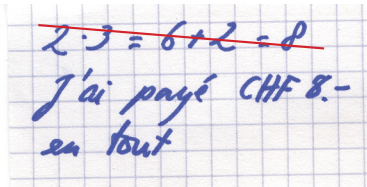 2·3 = 6+2 = 8
J'ai payé CHF 8.-
en tout